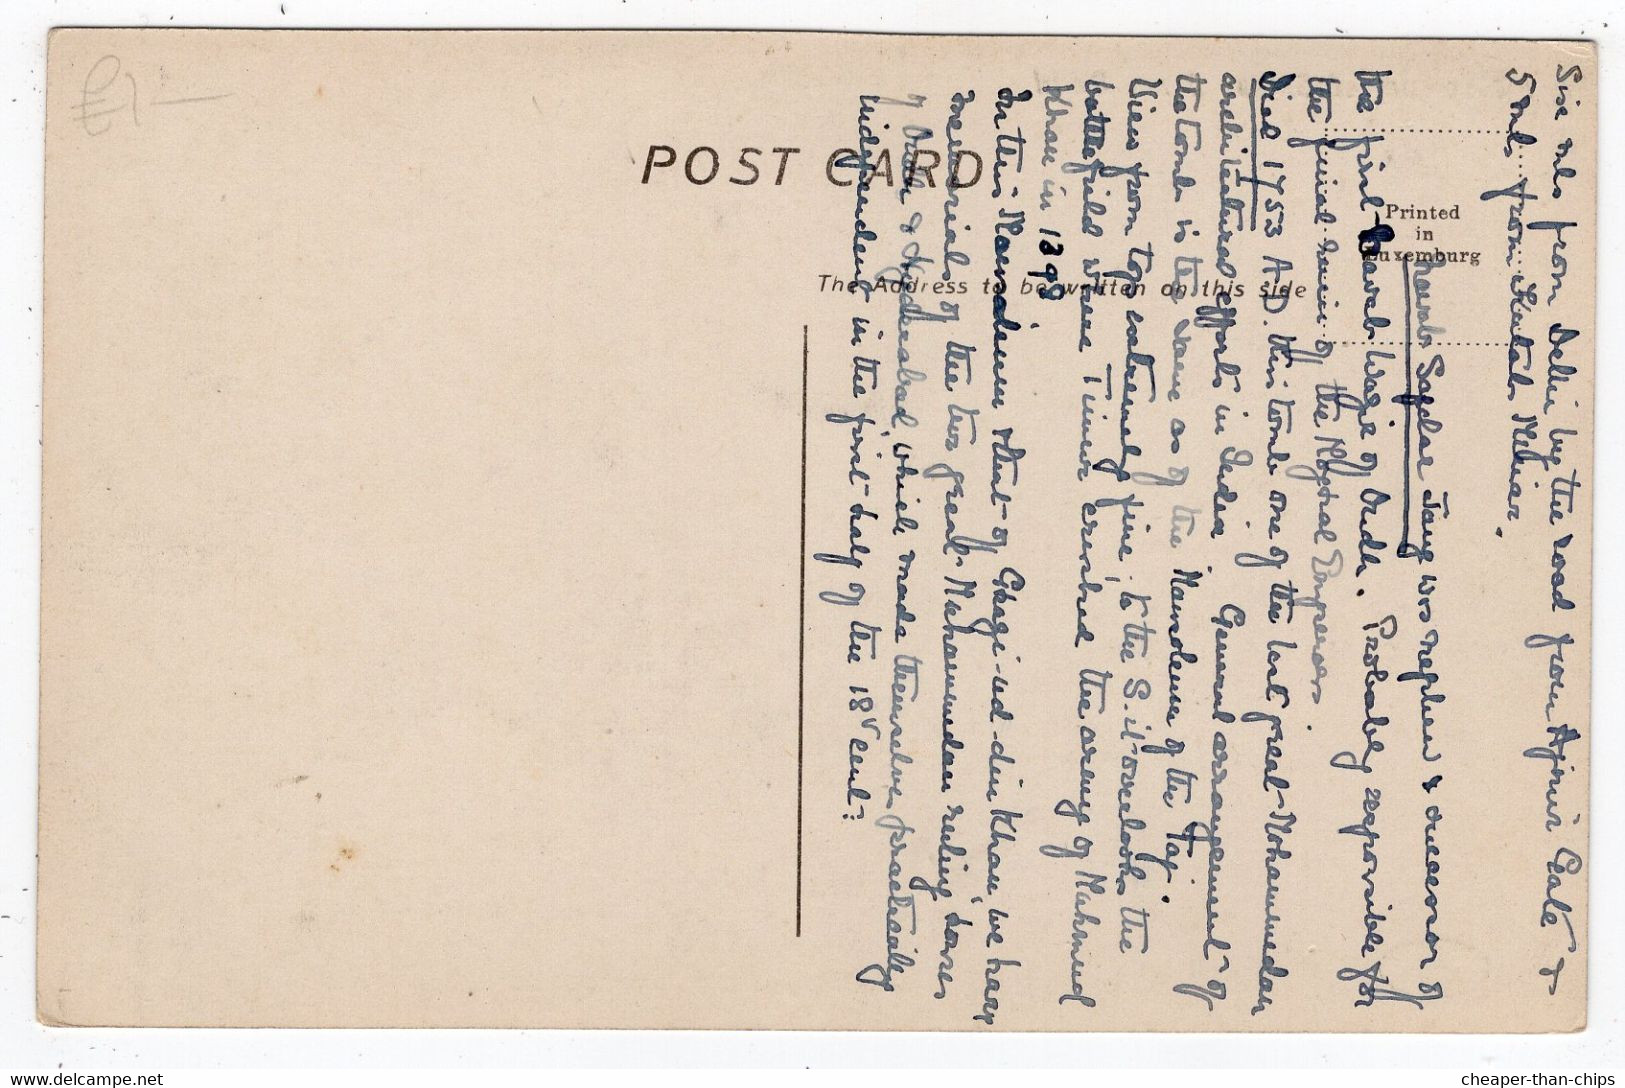 £1—
POST CARD
The Address to be written on this side
Printed
in
Luxemburg
Six mls from Delhi by the road from Ajmir Gate &
5 mls from Kutab Minar.
Nawab Safdar Jang was nephew & successor of
the first Nawab Wazir of Oudh. Probably responsible for
the final ruin of the Moghal Emperors.
Died 1753 A.D. this tomb one of the last great Mohammedan
architectural efforts in India General arrangement of
the tomb is the same as of the Mausoleum of the Taj.
View from top extremely fine: to the S. it overlooks the
battlefield where Timur crushed the army of Mahmud
Khan in 1399
In this Mausoleum & that of Ghazi-ud-din Khan we have
memorials of the two great Mahommedan ruling houses
of Oudh & Hyderabad, which made themselves practically
independent in the first half of the 18th cent:
cheaper-than-chips
www.delcampe.net